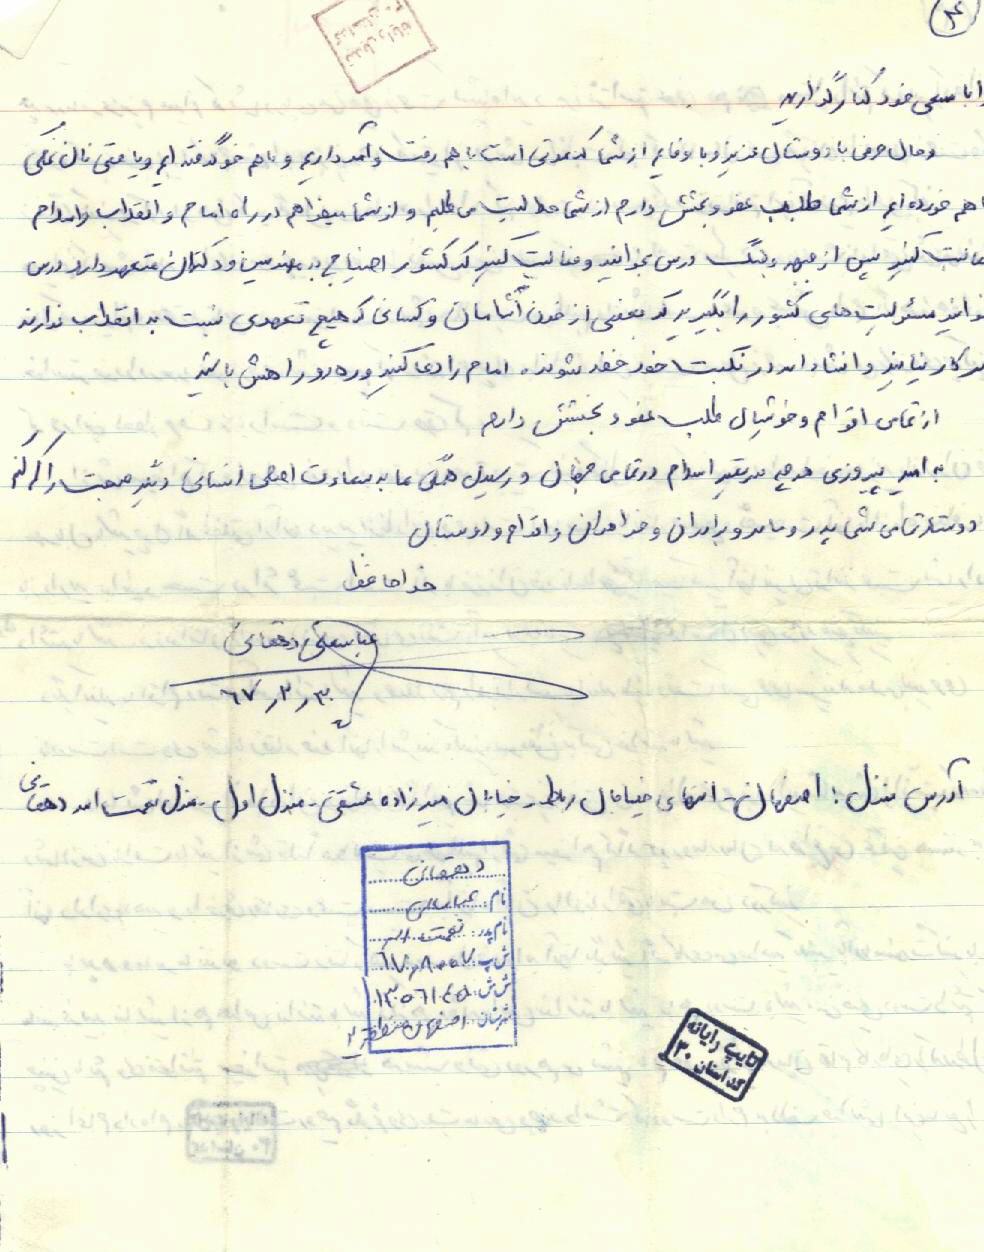 ۴
را با سعی خود کنار گذارید
و حال حرفی با دوستان عزیز و با وفایم از شما که مدتی است با هم رفت و آمد داریم و با هم خو گرفته ایم و یا حتی نان نمکی
با هم خورده ایم از شما طلب عفو و بخشش دارم از شما حلالیت می طلبم و از شما میخواهم در راه امام و انقلاب و اسلام
فعالیت کنید پس از جبهه و جنگ درس بخوانید و فعالیت کنید که کشور احتیاج به مهندسین و دکتران متعهد دارد درس
بخوانید مسئولیت های کشور را بگیرید که بعضی از خون آشامان و کسانی که هیچ تعهدی نسبت به انقلاب ندارند
سر کار نیایند و انشاء الله در نکبت خود خفه شوند. امام را دعا کنید و ره رو راهش باشید
از تمامی اقوام و خویشان طلب عفو و بخشش دارم
به امید پیروزی هر چه سریعتر اسلام در تمامی جهان و رسیدن همگی ما به سعادت اصلی انسانی
دوستدار تمامی شما پدر و مادر و برادران و خواهران و اقوام و دوستان
خداحافظ
عباسعلی دهقانی
۶۷٫۲٫۳۰
آدرس منزل: اصفهان - انتهای خیابان رباط - خیابان میرزاده عشقی - منزل اول - منزل نعمت اله دهقانی
دهقانی
نام: عباسعلی
نام پدر: نعمت اله
ش پ: ۶۷۰۸۰۰۷
ش ش: ۱۳۰۵۶۱۴۵۸
شهرستان: اصفهان منطقه ۲
تایپ رایانه
کد استان ۳۰